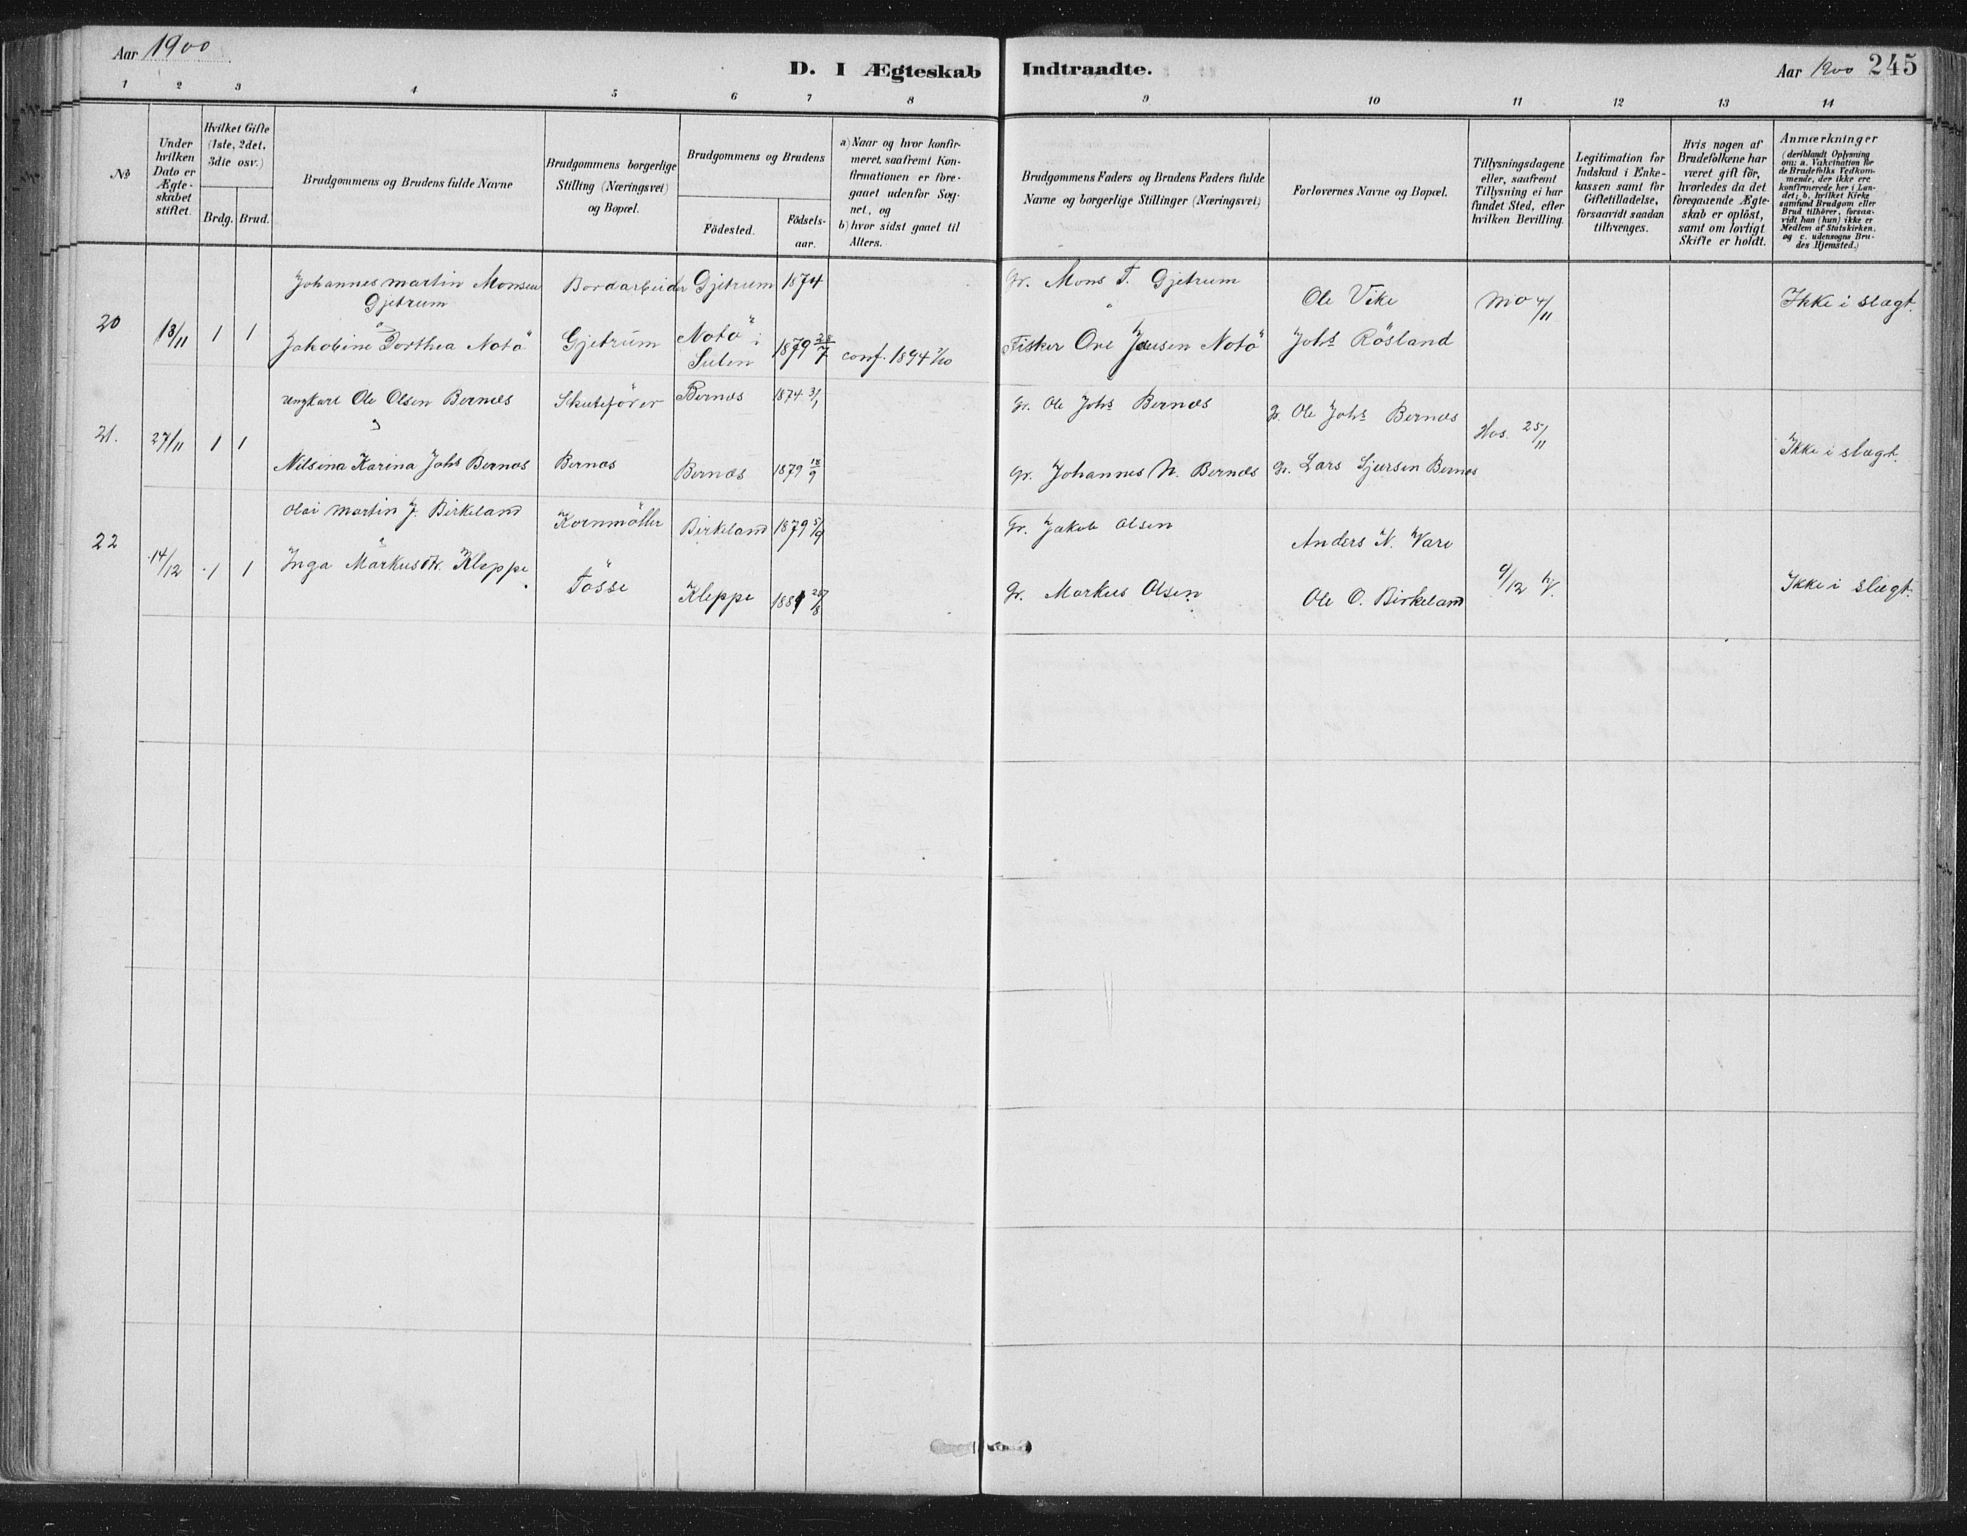 Aar 1900
D. I Ægteskab Indtraadte.
Aar 1900 245
1 2 3 4 5 6 7 8 9 10 11 12 13 14
No
Under hvilken Dato er Ægteskabet stiftet.
Hvilket Gifte (1ste, 2det, 3die osv.)
Brdg. Brud.
Brudgommens og Brudens fulde Navne
Brudgommens borgerlige Stilling (Næringsvei) og Bopæl.
Brudgommens og Brudens
Födested.
Födsels-aar.
a) Naar og hvor konfirmeret, saafremt Konfirmationen er foregaaet udenfor Sognet, og
b) hvor sidst gaaet til Alters.
Brudgommens Faders og Brudens Faders fulde Navne og borgerlige Stillinger (Næringsvei)
Forlovernes Navne og Bopæl.
Tillysningsdagene eller, saafremt Tillysning ei har fundet Sted, efter hvilken Bevilling.
Legitimation for Indskud i Enkekassen samt for Giftetilladelse, forsaavidt saadan tiltrænges.
Hvis nogen af Brudefolkene har været gift för, hvorledes da det foregaaende Ægteskab er oplöst, samt om lovligt Skifte er holdt.
Anmærkninger
(deriblandt Oplysning om: a. Vakcination for de Brudefolks Vedkommende, der ikke ere konfirmerede her i Landet; b. hvilket Kirkesamfund Brudgom eller Brud tilhörer, forsaavidt han (hun) ikke er Medlem af Statskirken. og c. udensogns Brudes Hjemsted.)
Johannes Martin Monsen Bordarbeider Gjetrum 1874 Gr. Mons T. Gjetrum Ole Vike Mo 4/11 Ikke i slægt.
Gjetrum
20 13/11 1 1 Jakobine Dorthea Notö Gjetrum Notö i Sulen 1879 28/7 conf. 1894 7/10 Fisker Ove Jensen Notö Johs Rösland
Ungkarl Ole Olsen Bernæs Skutefører Bernæs 1874 3/1 Gr. Ole Johs Bernæs Gr. Ole Johs Bernæs
21. 27/11 1 1 Hos. 25/11 Ikke i slægt.
Nilsina Karina Johs Bernæs Bernæs Bernæs 1879 18/9 Gr. Johannes N. Bernæs Gr. Lars Sjursen Bernæs
Olai Martin J. Birkeland Kornmöller Birkeland 1879 5/9 Gr. Jakob Olsen Anders N. Vare
22 14/12 1 1 Inga Markusdtr. Kleppe Tösse Kleppe 1881 Gr. Markus Olsen Ole O. Birkeland 9/12 Ikke i slægt.